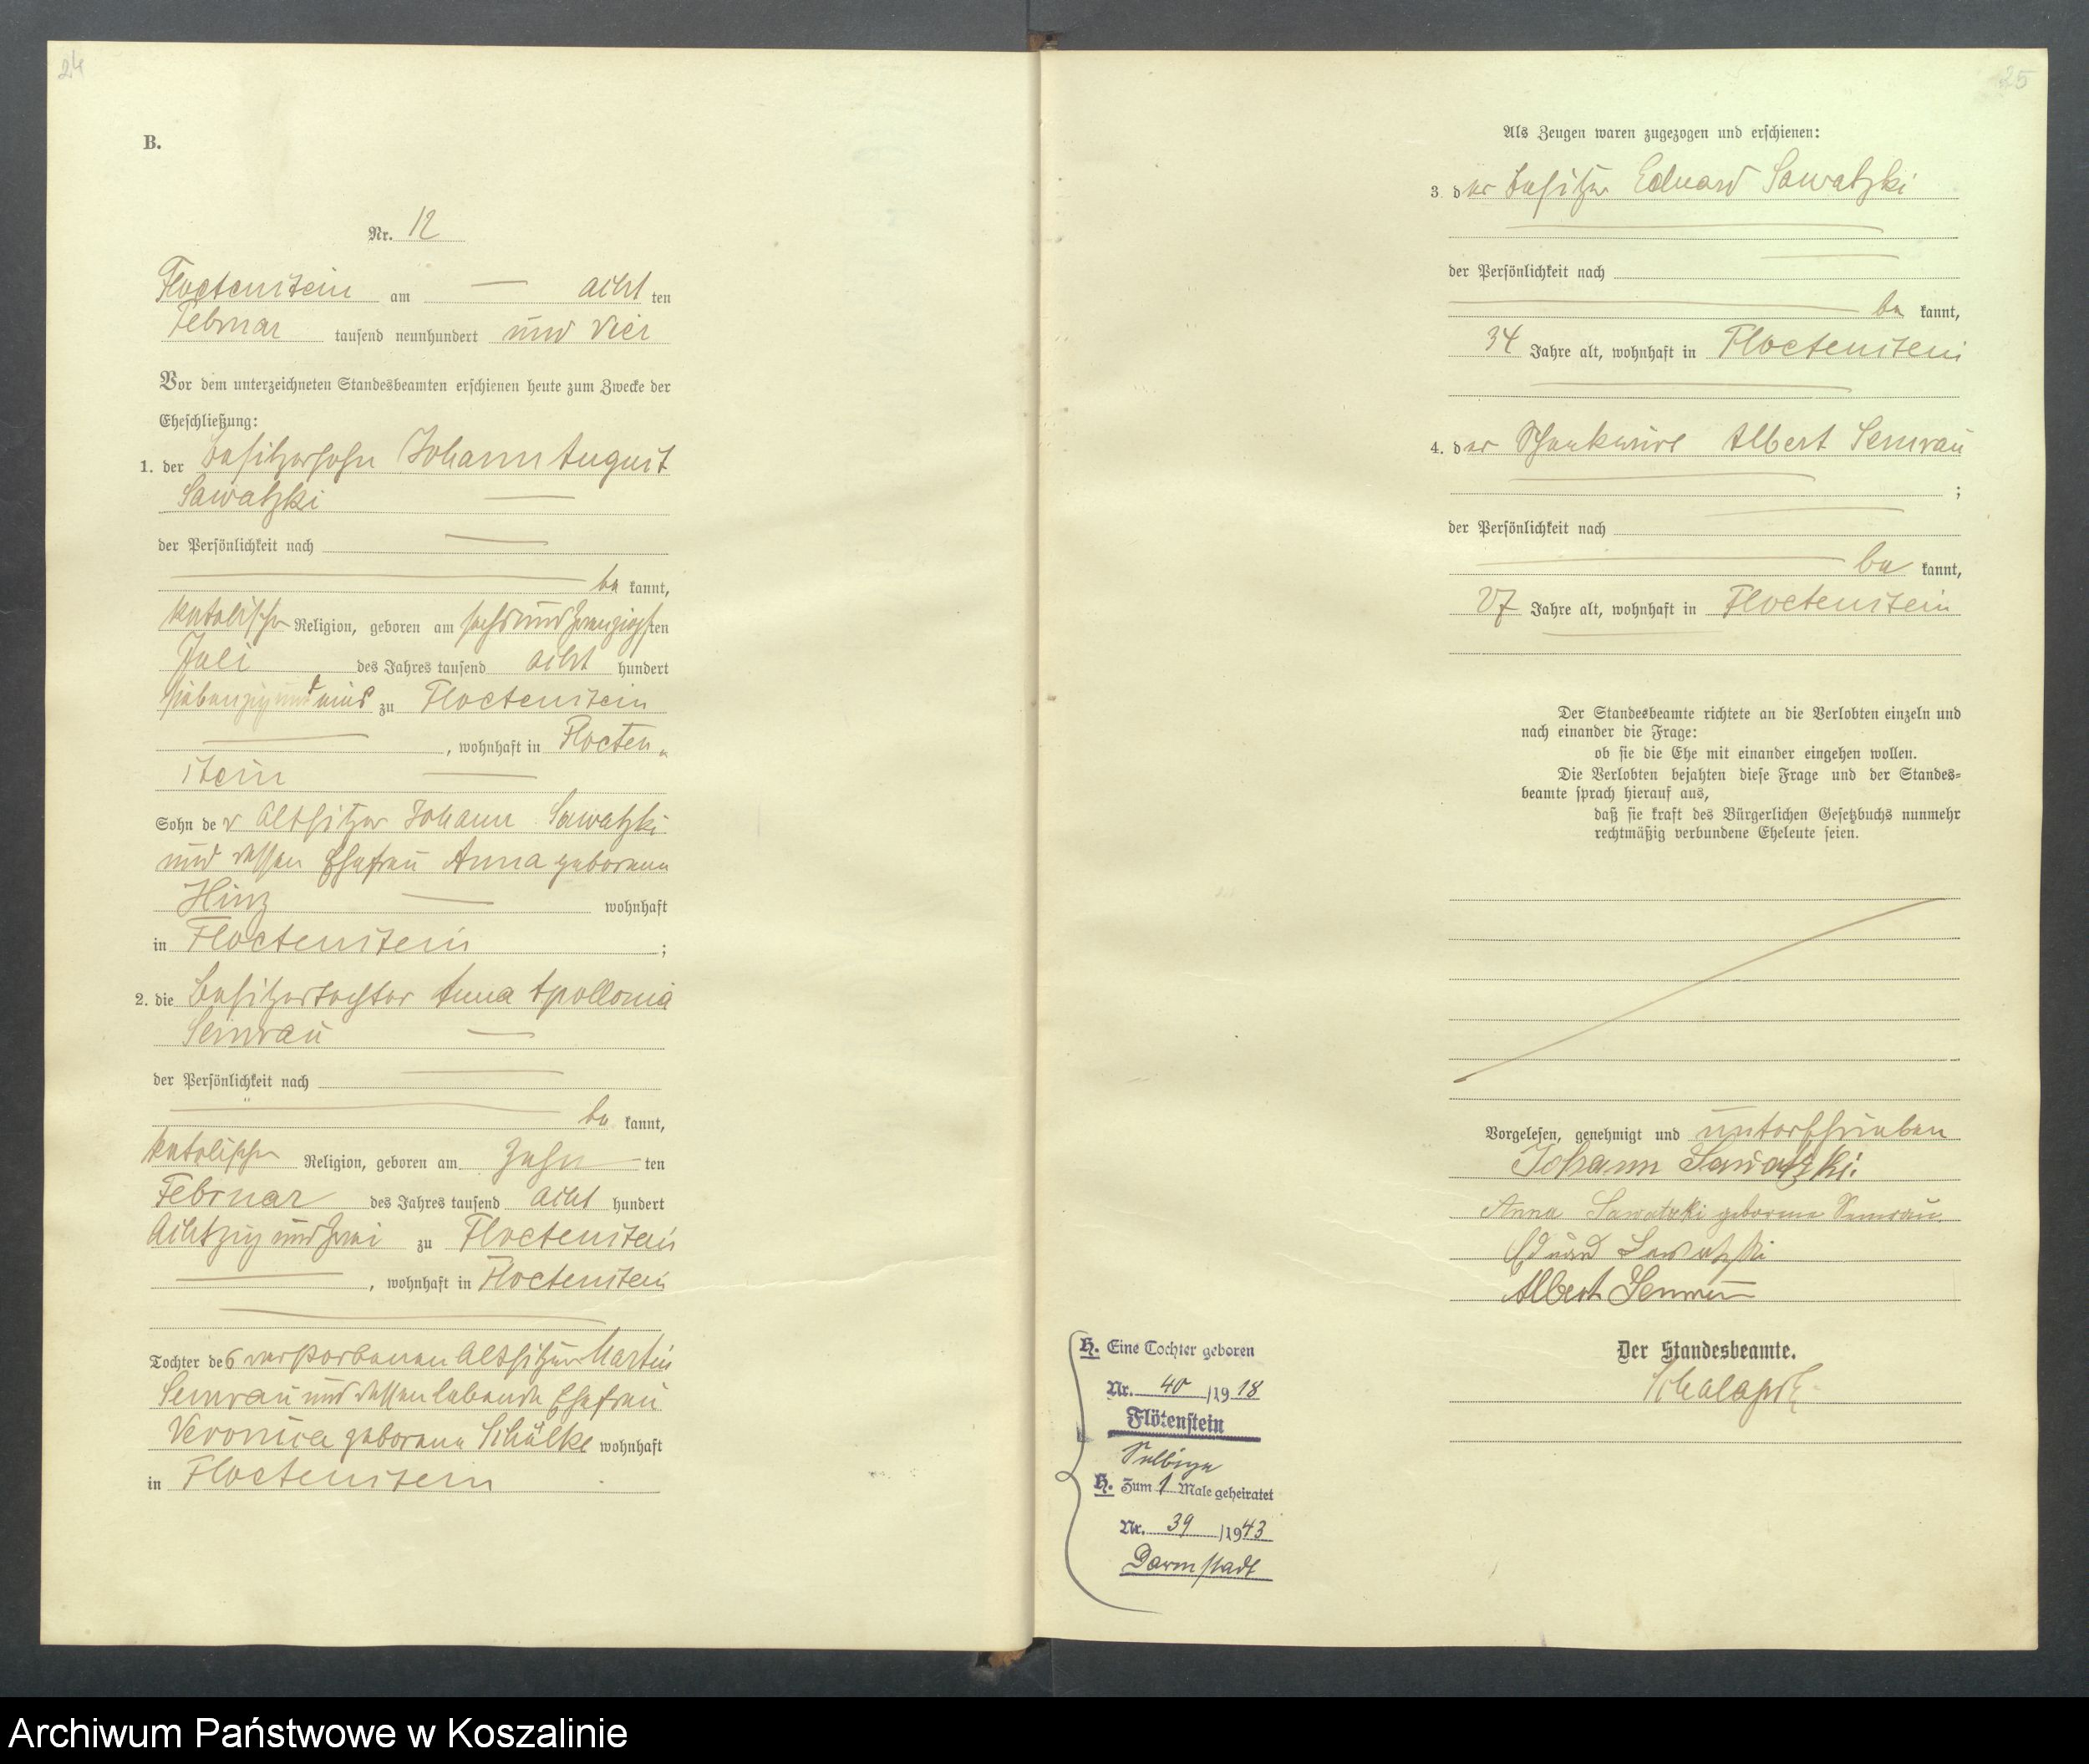 24
B.
Nr. 12
Floetenstein am — acht ten
Februar tausend neunhundert und vier
Vor dem unterzeichneten Standesbeamten erschienen heute zum Zwecke der
Eheschließung:
1. der Besitzersohn Johann August
Sawatzki —
der Persönlichkeit nach —
— be kannt,
katolischer Religion, geboren am sechsundzwanzigsten
Juli des Jahres tausend acht hundert
siebenzig und eins zu Floetenstein
—, wohnhaft in Floeten„
stein —
Sohn der Altsitzer Johann Sawatzki
und dessen Ehefrau Anna geborene
Hinz — wohnhaft
in Floetenstein ;
2. die Besitzertochter Anna Apollonia
Semrau —
der Persönlichkeit nach —
— be kannt,
katolischer Religion, geboren am zehn ten
Februar des Jahres tausend acht hundert
achtzig und zwei zu Floetenstein
—, wohnhaft in Floetenstein
Tochter des verstorbenen Altsitzer Martin
Semrau und dessen lebende Ehefrau
Veronica geborene Schülke wohnhaft
in Floetenstein
25
Als Zeugen waren zugezogen und erschienen:
3. der Besitzer Eduard Sawatzki
der Persönlichkeit nach —
— be kannt,
34 Jahre alt, wohnhaft in Floetenstein
4. der Schankwirt Albert Semrau
;
der Persönlichkeit nach
— be kannt,
27 Jahre alt, wohnhaft in Floetenstein
Der Standesbeamte richtete an die Verlobten einzeln und
nach einander die Frage:
ob sie die Ehe mit einander eingehen wollen.
Die Verlobten bejahten diese Frage und der Standes=
beamte sprach hierauf aus,
daß sie kraft des Bürgerlichen Gesetzbuchs nunmehr
rechtmäßig verbundene Eheleute seien.
Vorgelesen, genehmigt und unterschrieben
Johann Sawatzki.
Anna Sawatzki geborene Semrau.
Eduard Sawatzki
Albert Semrau
Der Standesbeamte.
H. Eine Tochter geboren
Nr. 40 /1918
Flötenstein
Selbige
H. Zum 1 Male geheiratet
Nr. 39 /1943
Darmstadt
Archiwum Państwowe w Koszalinie